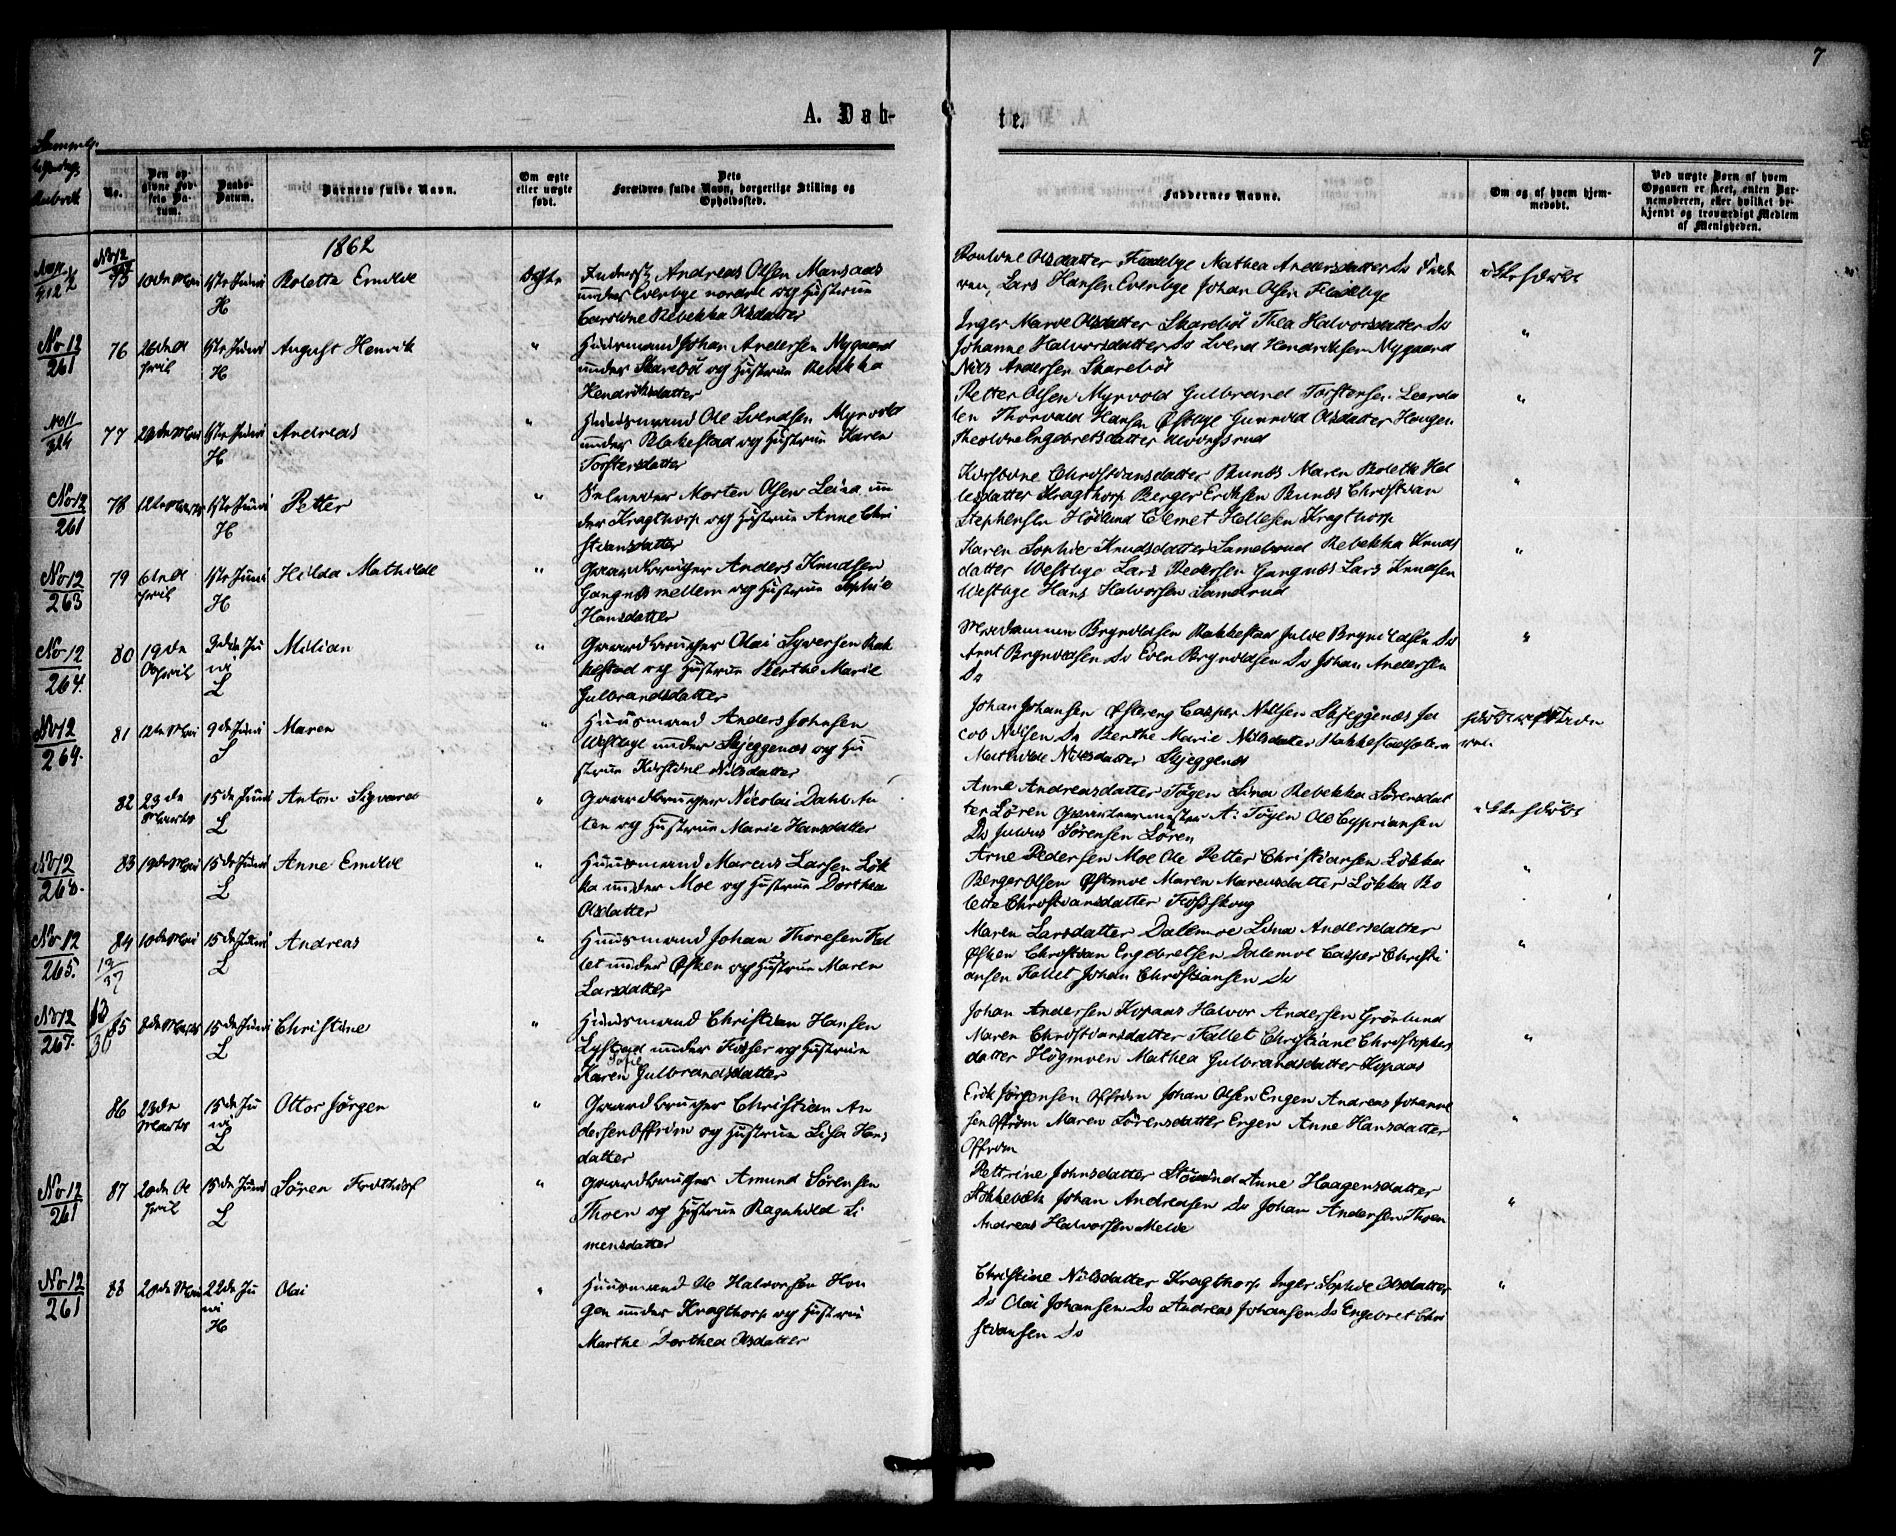 7
A. Døb-
te.
No.
Den op-
givne Fød-
sels Da-
tum.
Daabs-
Datum.
Barnets fulde Navn.
Om ægte
eller uægte
født.
Dets
Forældres fulde Navn, borgerlige Stilling og
Opholdssted.
Faddernes Navne.
Om og af hvem hjem-
medøbt.
Ved uægte Børn af hvem
Opgaven er skeet, enten Bar-
nemoderen, eller hvilket be-
kjendt og troværdigt Medlem
af Menigheden.
1862
75
10de Mai
1ste Juni
H
Bolette Emilie
Ægte
Inderst Andreas Olsen Mansaas
under Evenbye nordre og Hustrue
Caroline Rebekka Olsdatter
Pauline Olsdatter Fladebye Mathea Andersdatter Do
Lars Hansen Evenbye Johan Olsen Fladebye
ikke hdøbt
No 12
261
76
26de A
pril
1ste Juni
H
August Henrik
"
Huusmand Johan Andersen Nygaard
under Skarebøl og Hustrue Rebekka
Hendriksdatter
Inger Marie Olsdatter Skarebøl Thea Halvorsdatter Do
Johanne Halvorsdatter Do Svend Hendriksen Nygaard
Nils Andersen Skarebøl
"
No 11
324
77
1ste Juni
H
Andreas
"
Huusmand Ole Svendsen Myrvold
under Rakkestad og Hustrue Karen
Torstensdatter
Petter Olsen Myrvold Gulbrand Torstensen Leerda
len Thorvald Hansen Østbye Gunnild Olsdatter Haugen
Engebretsdatter
"
No 12
261
78
12te Marts
1ste Juni
H
Petter
"
Selveier Morten Olsen Leira un
der Kragthorp og Hustrue Anne Chri
stiansdatter
Kirstine Christiansdatter Bunæs Maren Bolette Hel
lesdatter Kragthorp Berger Eriksen Bunæs Christian
Stephensen Høilund Clemet Hellesen Kragthorp
"
No 12
263
79
6te A
pril
1ste Juni
H
Hilda Mathilde
"
Gaardbruger Anders Knudsen
Gangnæs mellem og Hustrue Sophie
Hansdatter
Karen Sophie Knudsdatter Lamebrud Rebekka Knuds
datter Westbye Lars Pedersen Gangnæs Lars Knudsen
Westbye Hans Halvorsen Lamebrud
"
No 12
264.
80
19de
April
3die Ju
ni
L
Milian
"
Gaardbruger Olai Syversen Rak
kestad og Hustrue Berthe Marie
Gulbrandsdatter
Madammen Brynildsen Rakkestad Julie Brynildsen Do
Arnt Brynildsen Do Even Brynildsen Do Johan Andersen
Do
"
No 12
264.
81
12te Mai
9de Juni
S
Maren
"
Huusmand Anders Johnsen
Westbye under Skjeggenæs og Hu
strue Kirstine Nilsdatter
Johan Johansen Østereng Casper Nilsen Skjeggenæs Ja
cob Nilsen Do Berthe Marie Nilsdatter Rakkestad
Mathilde Nilsdatter Skjeggenæs
82
23de
Marts
15de Juni
L
Anton Sigvard
"
Gaardbruger Nicolai Dahl An
ten og Hustrue Marie Hansdatter
Anne Andreasdatter Tøgen Lina Rebekka Sørensdat
ter Løren A: Tøyen Ole Cypriansen
Do Julius Sørensen Løren
ikke hdøbt
No 12
83
19de Mai
15de Juni
L
Anne Emilie
"
Huusmand Marcus Larsen Løk
ka under Moe og Hustrue Dorthea
Olsdatter
Arne Pedersen Moe Ole Petter Christiansen Løkka
Berger Olsen Østmoe Maren Marcusdatter Løkka Bo
lette Christiansdatter Fossskoug
"
No 12
265.
84
13
37
10de Mai
15de Juni
L
Andreas
"
Huusmand Johan Thoresen Fal
let under Øsken og Hustrue Maren
Larsdatter
Maren Larsdatter Dalemoe Lina Andersdatter
Øsken Christian Engebretsen Dalemoe Casper Christi
ansen Fallet Johan Christiansen Do
"
No 12
267.
85
13
30
8de Marts
15de Juni
L
Christine
"
Huusmand Christian Hansen
Lystad under Fosser og Hustrue
Karen Gulbrandsdatter
Johan Andersen Kopaas Halvor Andersen Grønlund
Maren Christiansdatter Fallet Christiane Christophers
datter Høgmoen Mathea Gulbrandsdatter Kopaas
"
86
23de
Marts
15de Ju
ni
L
Otto Jørgen
"
Gaardbruger Christian An
dersen Offrim og Hustrue Lisa Hans
datter
Erik Jørgensen Offrim Johan Olsen Engen Andreas Johanne
sen Offrim Maren Sørensdatter Engen Anne Hansdatter
Offrim
"
No 12
261
87
20de A
pril
15de Juni
L
Søren Fridthjof
"
Gaardbruger Amund Sørensen
Thoen og Hustrue Ragnhild Si
mensdatter
Pettrine Johnsdatter Anne Haagensdatter
Stokkebæk Johan Andreasen Do Johan Andersen Thoen
Andreas Halvorsen Melde
"
No 12
261
88
20de Mai
22de Ju
ni
H
Olai
"
Huusmand Ole Halvorsen Hou
gen under Kragthorp og Hustrue
Marthe Dorthea Olsdatter
Christine Nilsdatter Kragthorp Inger Sophie Olsdatter
Do Olai Johansen Do Andreas Johansen Do Engebret Chri
stiansen Do
"